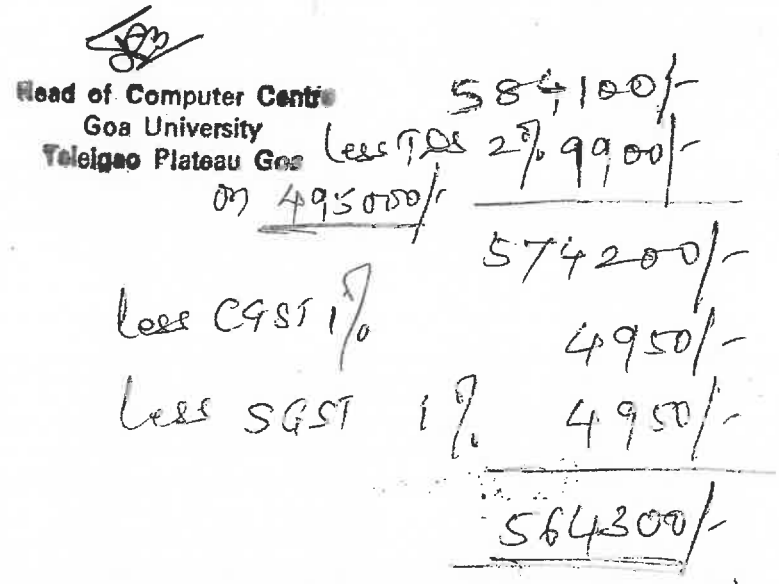 Head of Computer Centre
Goa University
Taleigao Plateau Goa
584100/-
less TDS 2% 9900/-
on 495000/-
574200/-
less CGST 1% 4950/-
less SGST 1% 4950/-
564300/-